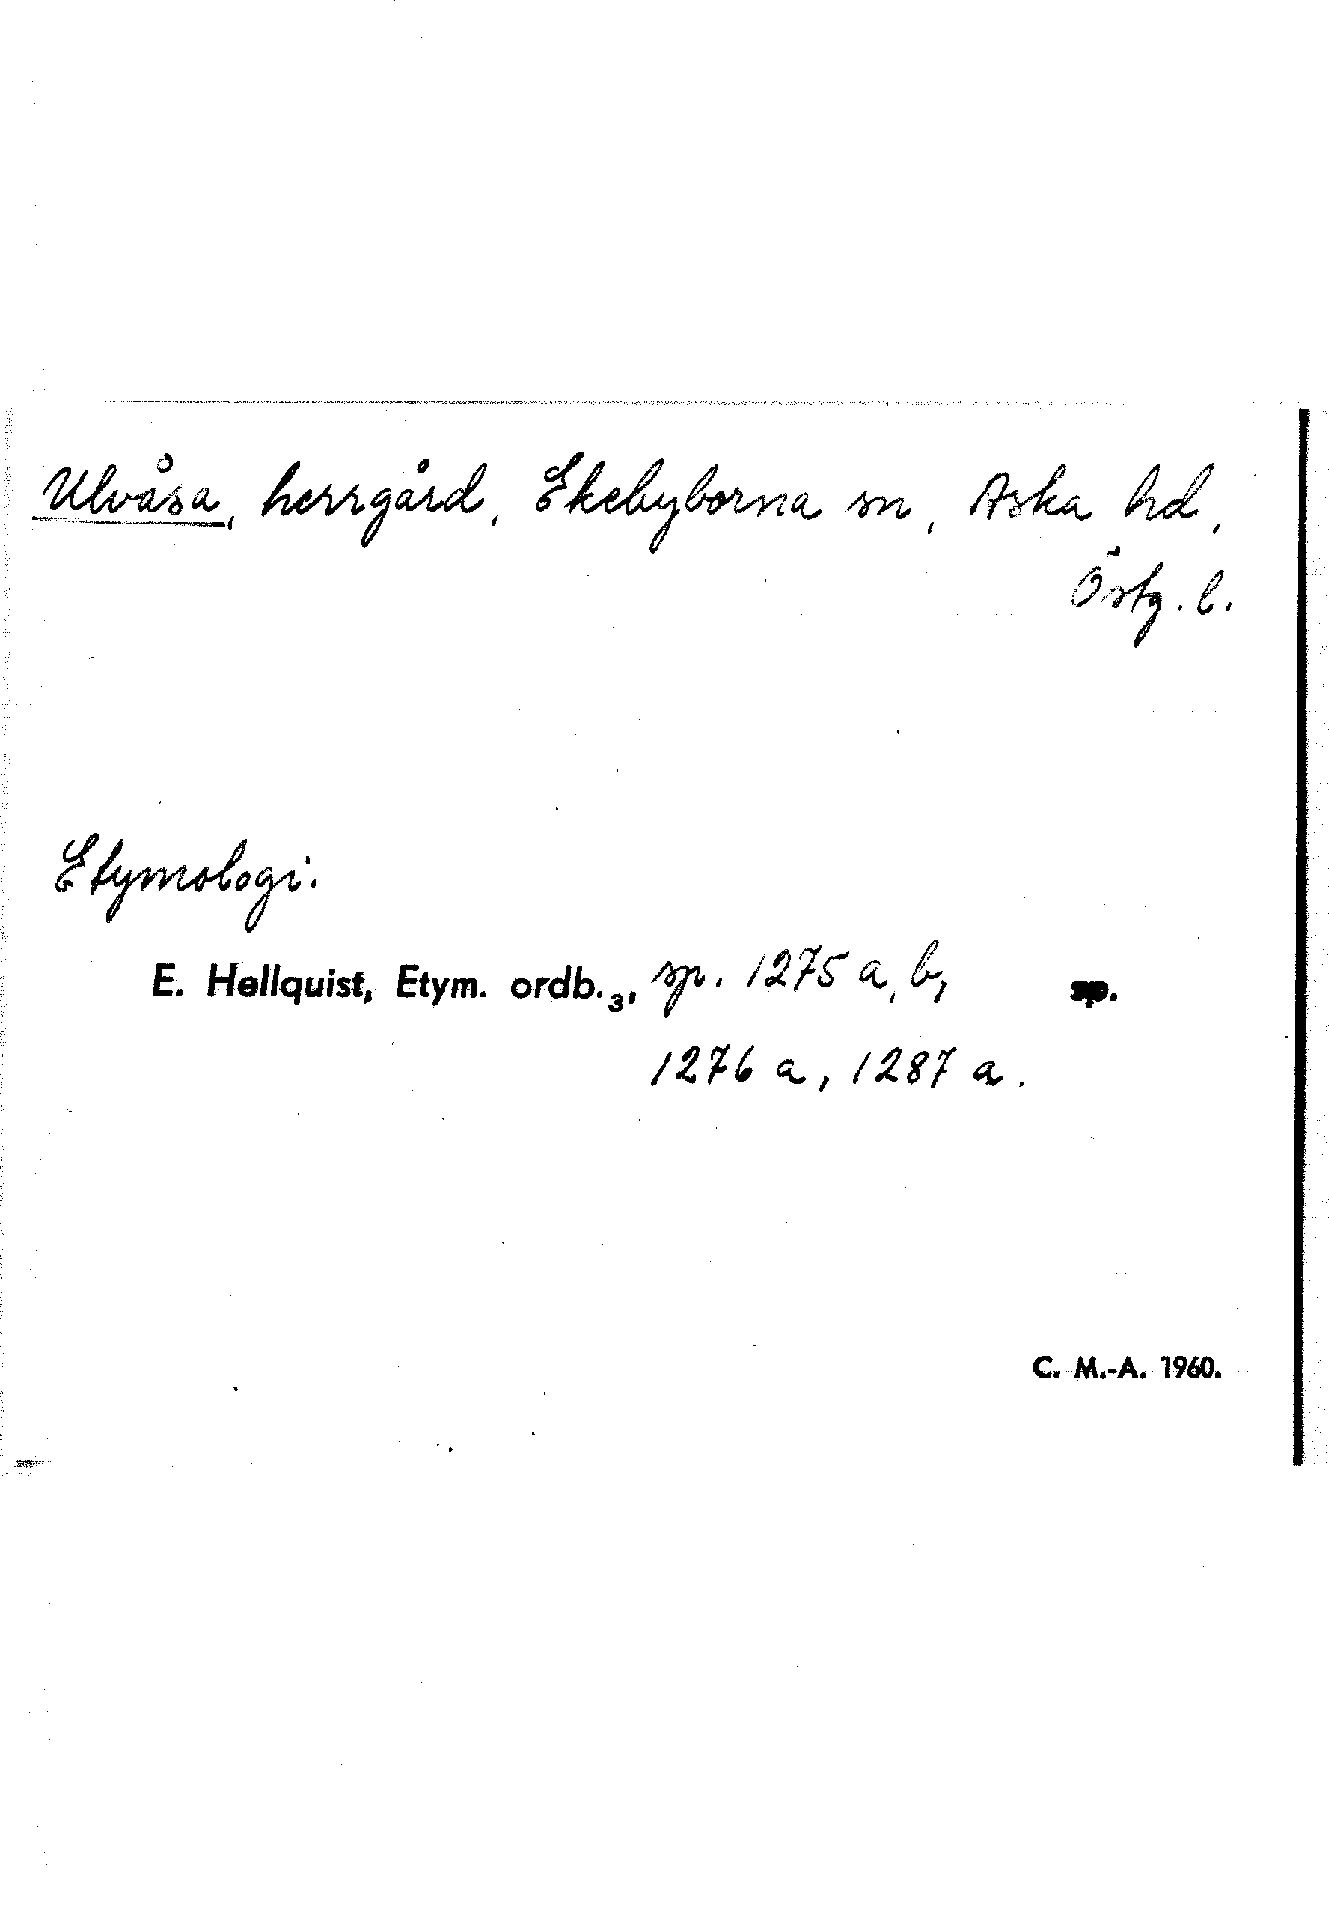 Ulvåsa, herrgård, Ekebyborna sn, Aska hd,
Östg. l.
Etymologi.
E. Hellquist, Etym. ordb.₃, sp. 1275 a, b, sp.
1276 a, 1287 a.
C. M.-A. 1960.